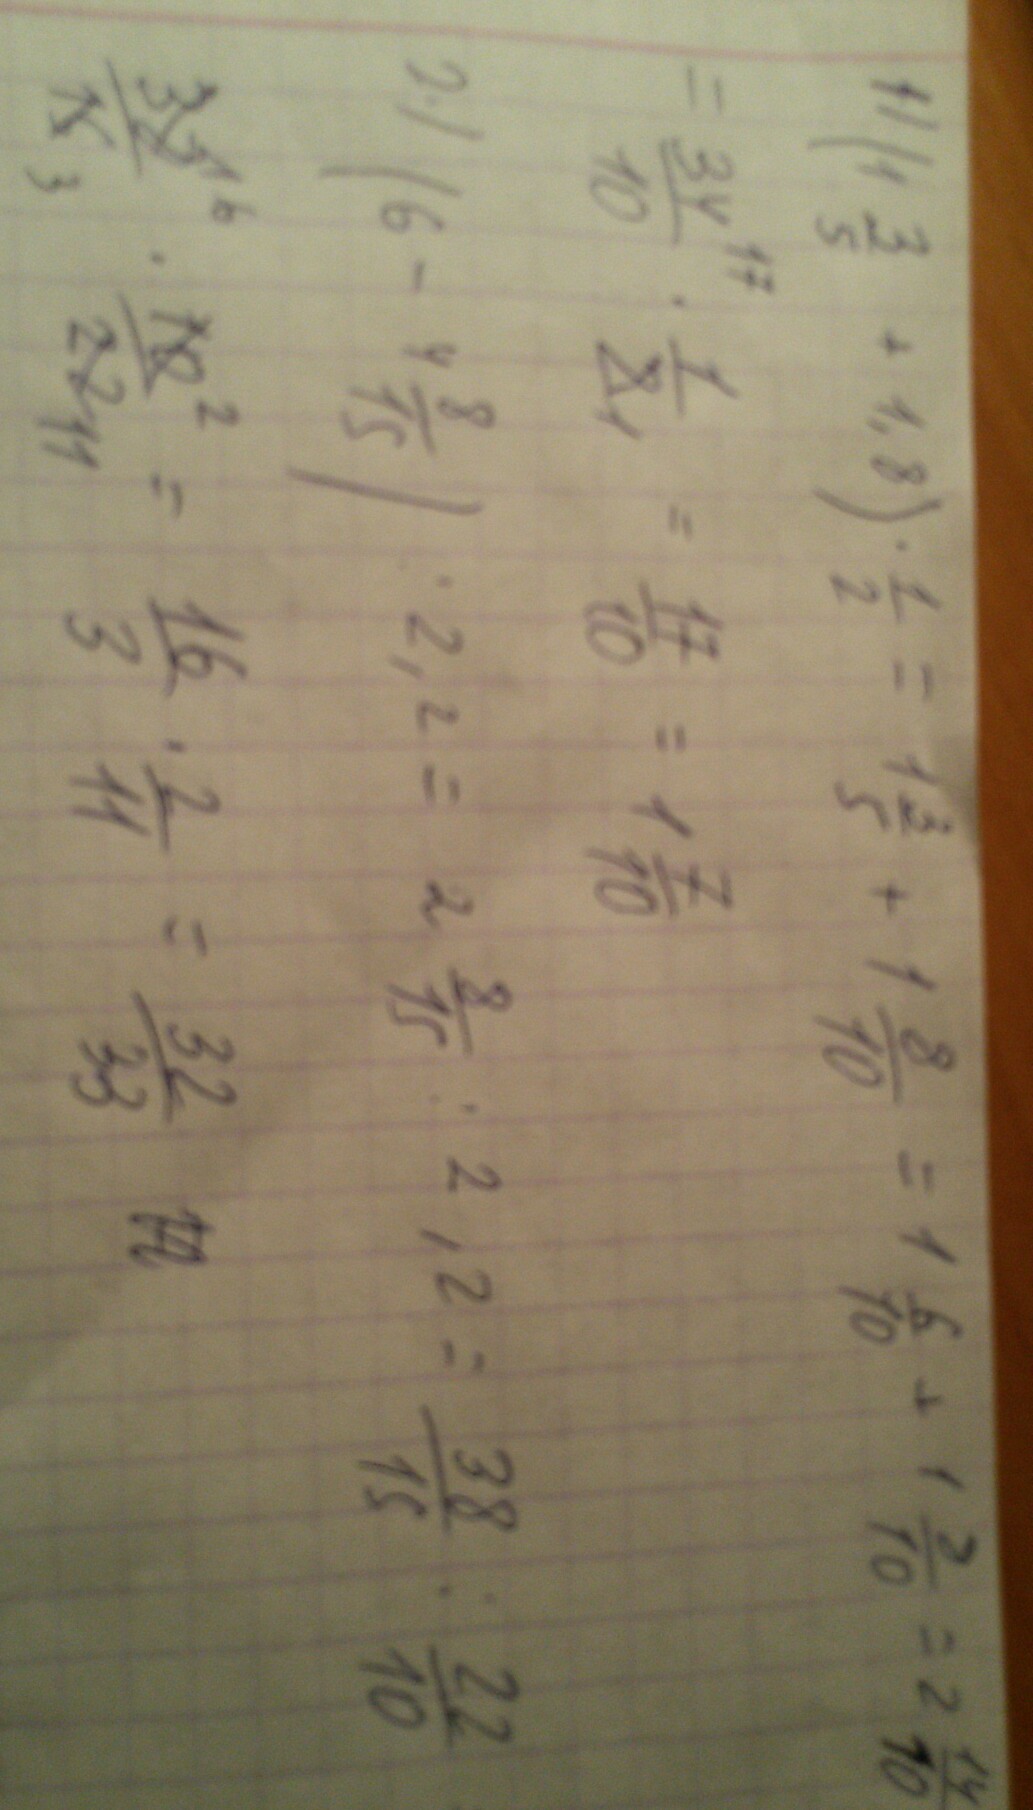 1) (1 3/5 + 1,8) · 1/2 = 1 3/5 + 1 8/10 = 1 6/10 + 1 8/10 = 2 14/10
= 34/10 17 · 1/2 1 = 17/10 = 1 7/10
2) (6 - 4 8/15) : 2,2 = 2 8/15 : 2,2 = 38/15 : 22/10
32 16/15 3 · 10 2/22 11 = 16/3 · 2/11 = 32/33